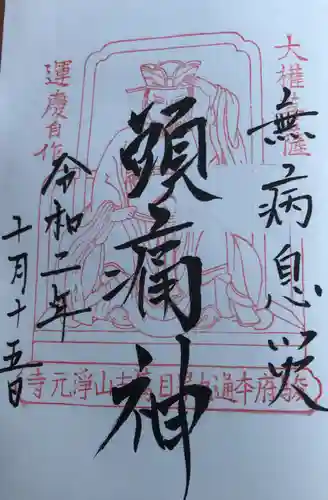 大権菩薩
無病息災
頭痛神
運慶自作
令和二年
十月十五日
寺元淨山
府本通
目